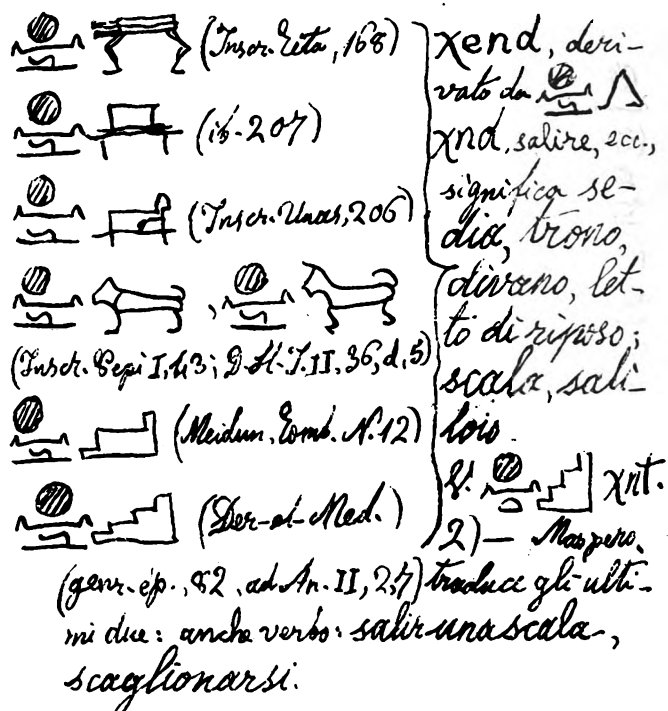 𓐍𓈖𓂧 (Inscr. Teta, 168)
𓐍𓈖𓂧 (ib. 207)
𓐍𓈖𓂧 (Inscr. Unas, 206)
𓐍𓈖𓂧 , 𓐍𓈖𓂧
(Inscr. Pepi I, 43; D. H. I. II, 36, d, 5)
𓐍𓈖𓂧 (Meidum, Tomb. N. 12)
𓐍𓈖𓂧 (Der-el-Med.)
χend, deri-
vato da 𓐍𓈖𓂧𓂻
χnd, salire, ecc.,
significa se-
dia, trono,
divano, let-
to di riposo;
scala, sali-
toio.
V. 𓐍𓈖𓏏 χnt.
2) — Maspero,
(genr. ép., 82, ad An. II, 2,7) traduce gli ulti-
mi due: anche verbo: salir una scala,
scaglionarsi.